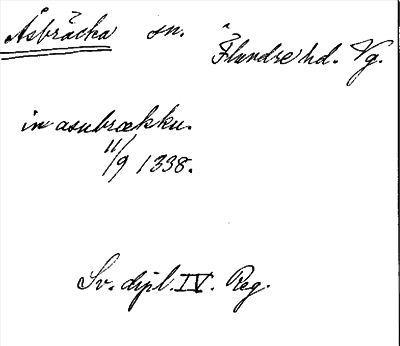 Åsbräcka sn. Flundre hd. Vg.
in asubrækku.
11/9 1338.
Sv. dipl. IV. Reg.